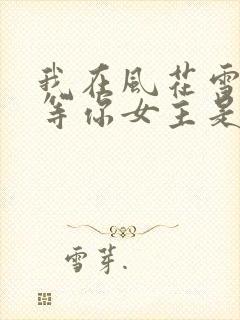 我在風花雪
等你女主是
雪芽.